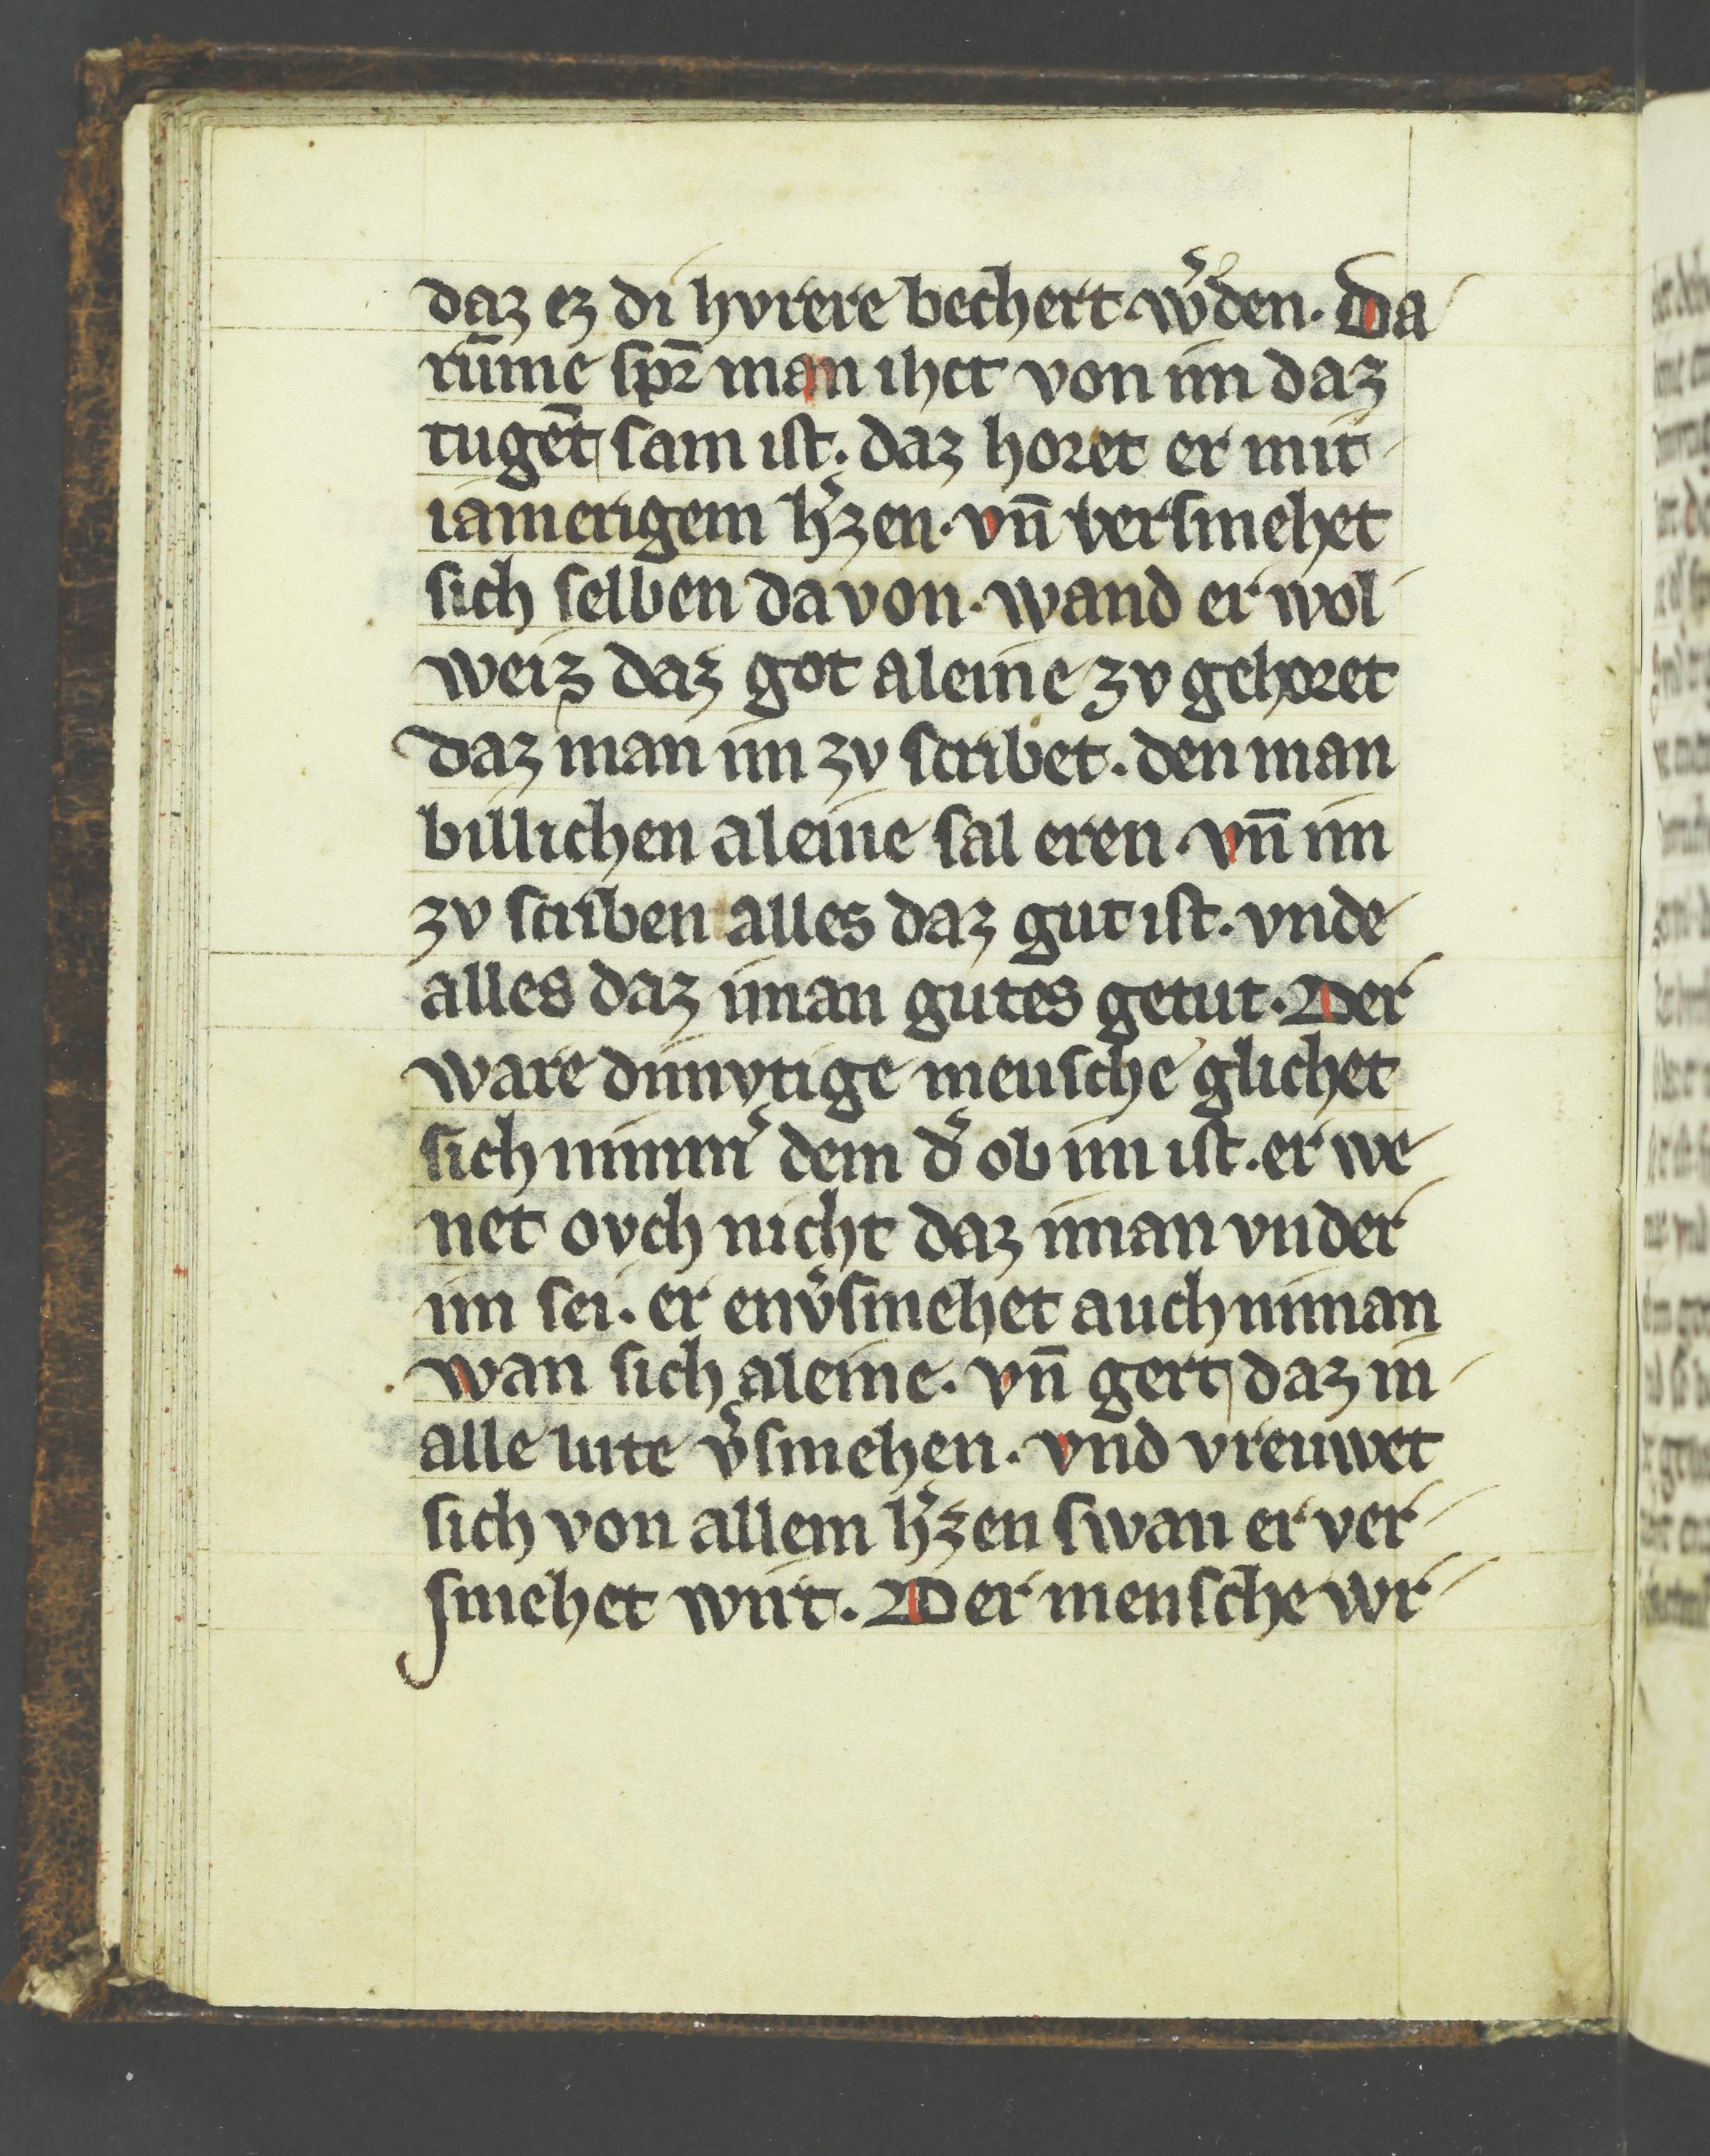 daz ez di hvrere bechert w͛den. Da
rūme spꝛ̄ man ihct von im daz
tugēt sam ist. daz horet er mit
iamerigem h͛zen. vn̄ versmehet
sich selben da von. wand er wol
weiz daz got aleine zv gehoret
daz man im zv scribet. den man
billichen aleine sal eren. vn̄ im
zv scriben alles daz gut ist. vnde
alles daz iman gutes getut. Der
ware dimvtige mensche glichet
sich nimm͛ dem d͛ ob im ist. er we
net ovch nicht daz iman vnder
im sei. er env͛smehet auch niman
wan sich aleine. vn̄ gert daz in
alle lute v͛smehen. vnd vreuwet
sich von allem h͛zen swan er ver
smehet wirt. Der mensche wr